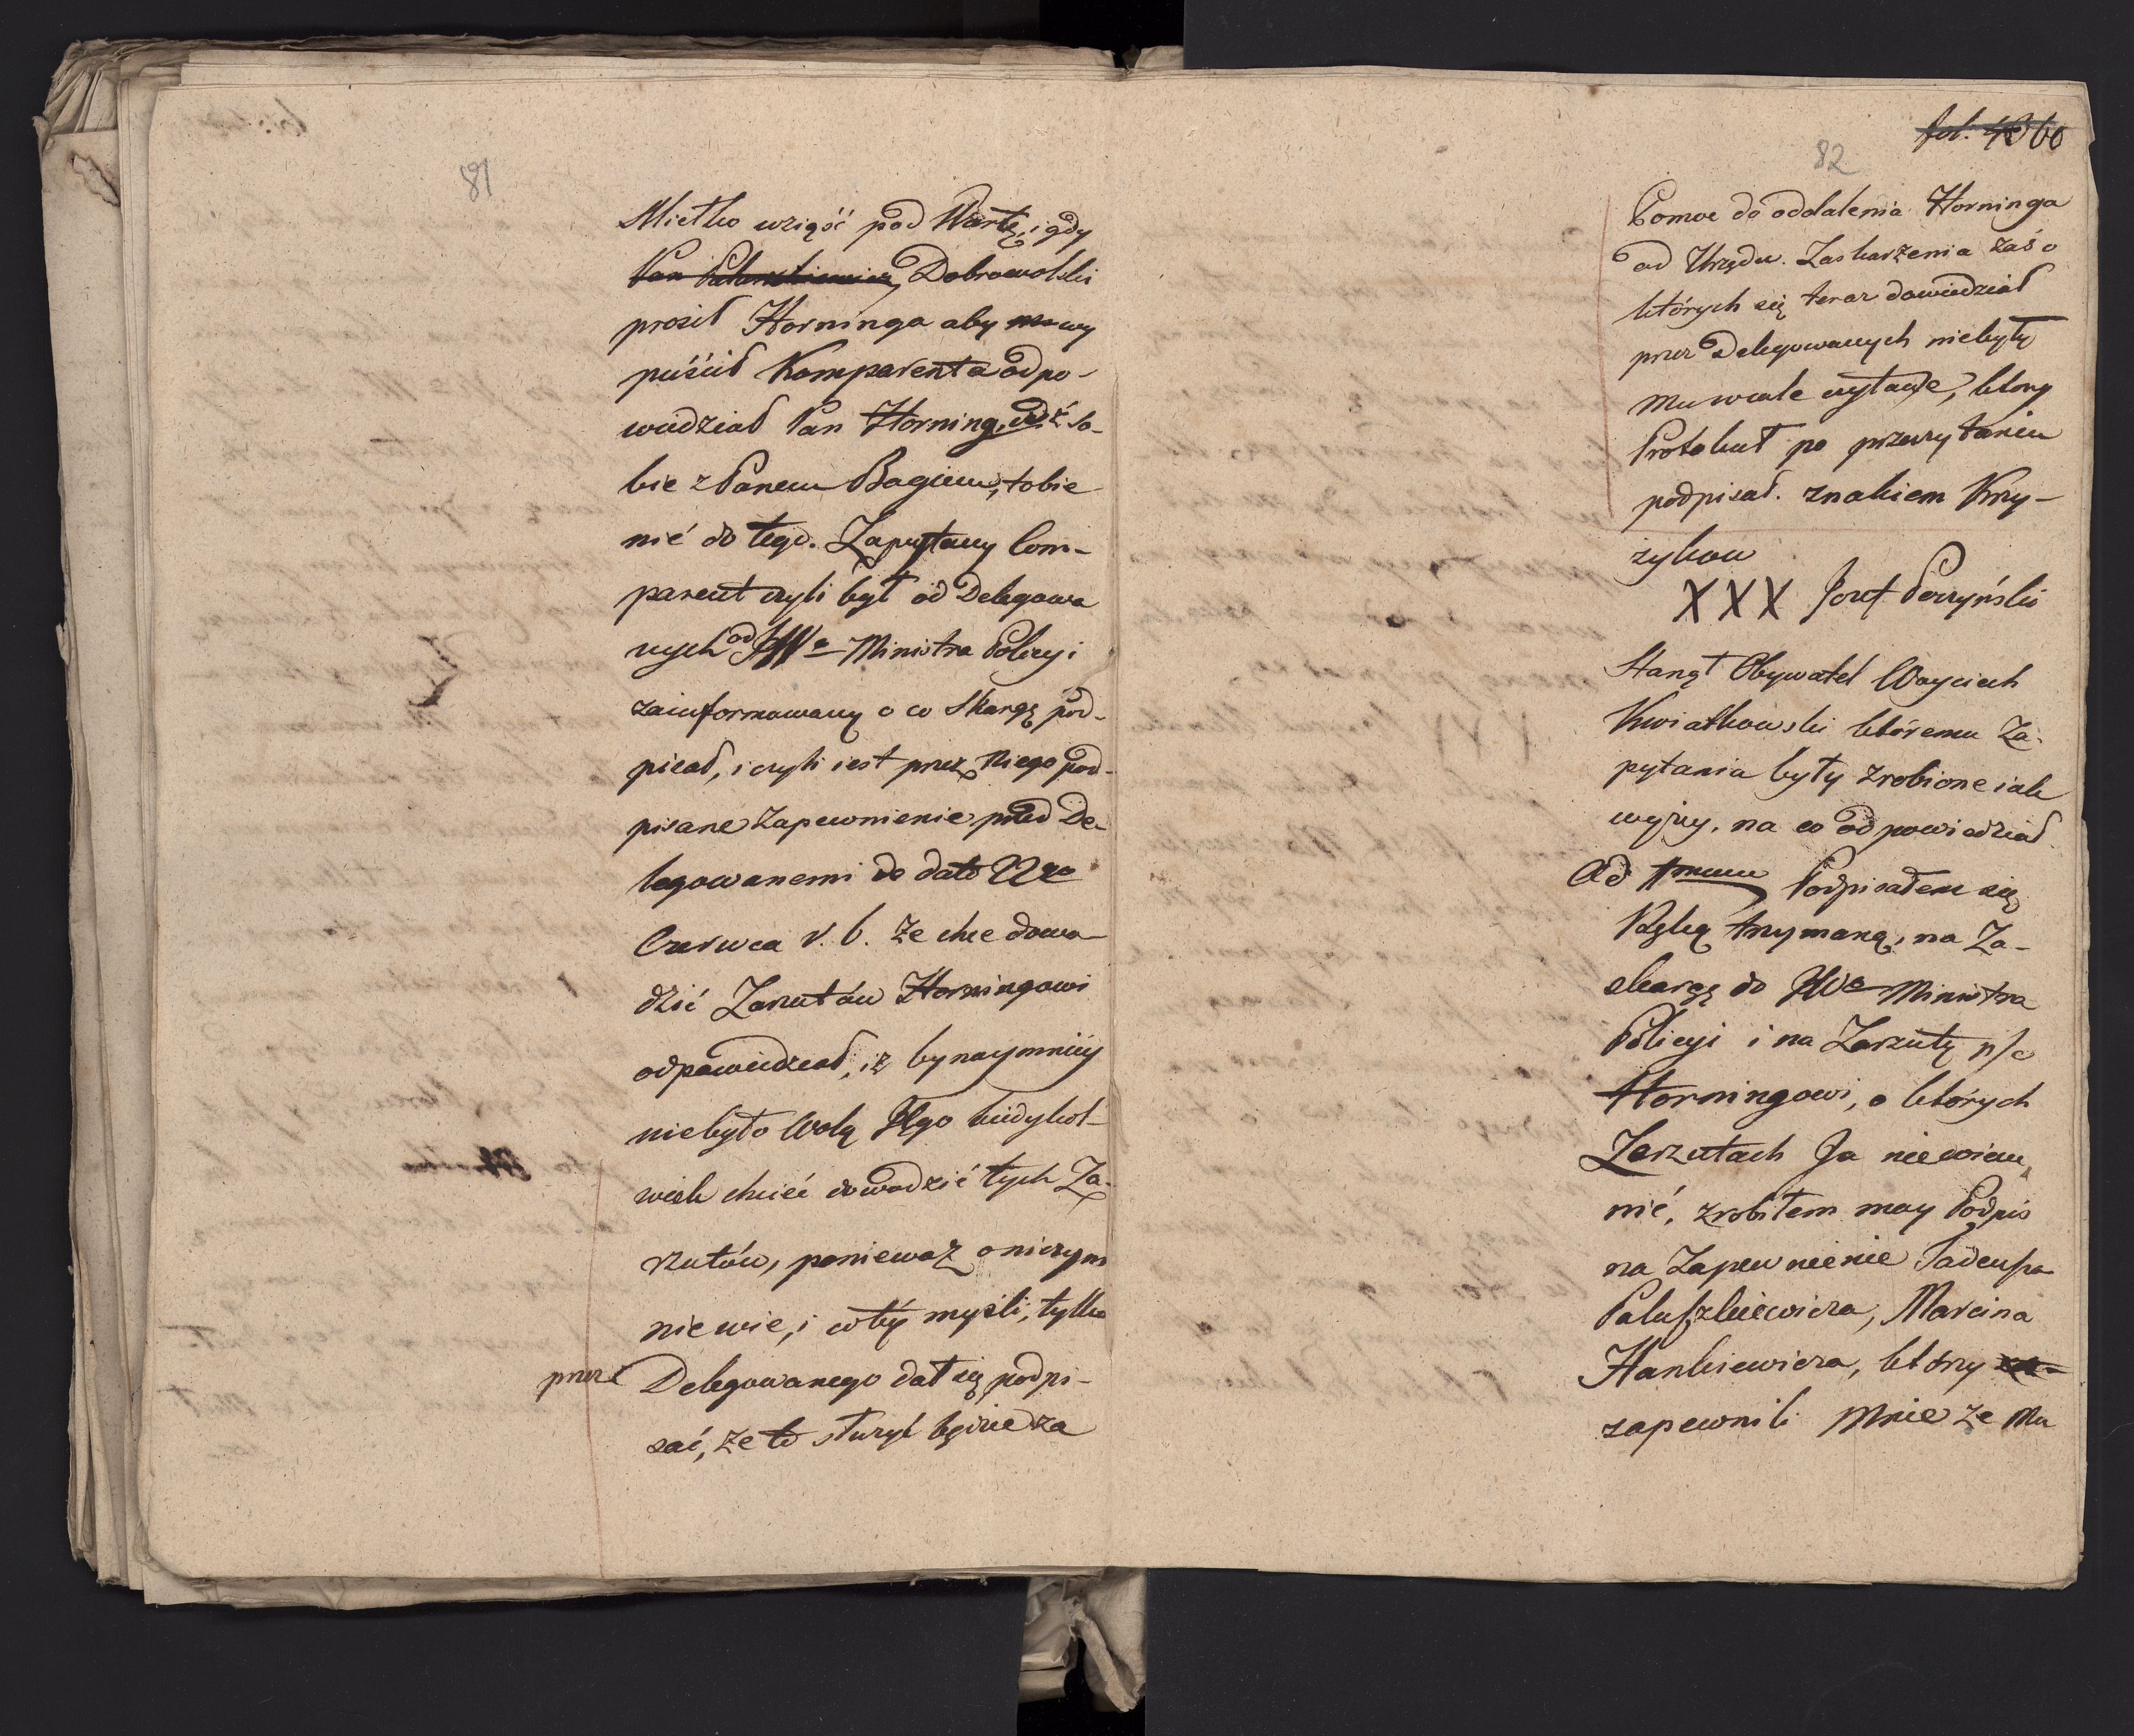 81
Mietko wziąść pod Wartę, i gdy
Pan Paluszkiewicz Dobrowolski
prosił Horninga aby wy
puścił Komparenta odpo-
wiedział Pan Horning, idź so-
bie z Panem Bogiem, tobie
nić do tego. Zapytany Com-
parent czyli był od Delegowa
nych od JWo Ministra Policyi
zainformowany o co Skargę pod-
pisał, i czyli iest przez Niego pod-
pisane zapewnienie przed De-
legowanemi de dato 22go
Czerwca r. b. że chce dowo-
dzić Zarzutów Horningowi
odpowiedział, iż bynaymniey
niebyło wolą Jego kiedykol-
wiek chcieć dowodzić tych Za-
rzutów, ponieważ o niczym
nie wie, i w tey myśli, tylko
przez Delegowanego dał się podpi-
sać, że to służyć będzie za
fol. 42 60
82
Pomoc do oddalenia Horninga
od Urzędu. Zaskarżenia zaś o
których się teraz dowiedział
przez Delegowanych niebyły
mu wcale czytane, który
Protokuł po przeczytaniu
podpisał. znakiem Krzy-
żykow
XXX Jozef Poczyński
Stanął Obywatel Woyciech
Kwiatkowski któremu Za-
pytania były zrobione iak
wyżey, na co odpowiedział.
Ad 1mum Podpisałem się
Ręką trzymaną, na Za-
skargę do JWo Ministra
Policyi i na Zarzuty p/c
Horningowi, o których
Zarzutach Ja nie wiem
nić, zrobiłem moy Podpis
na Zapewnienie Tadeusza
Paluszkiewicza, Marcina
Hankiewicza, którzy
zapewnili mnie że Mu